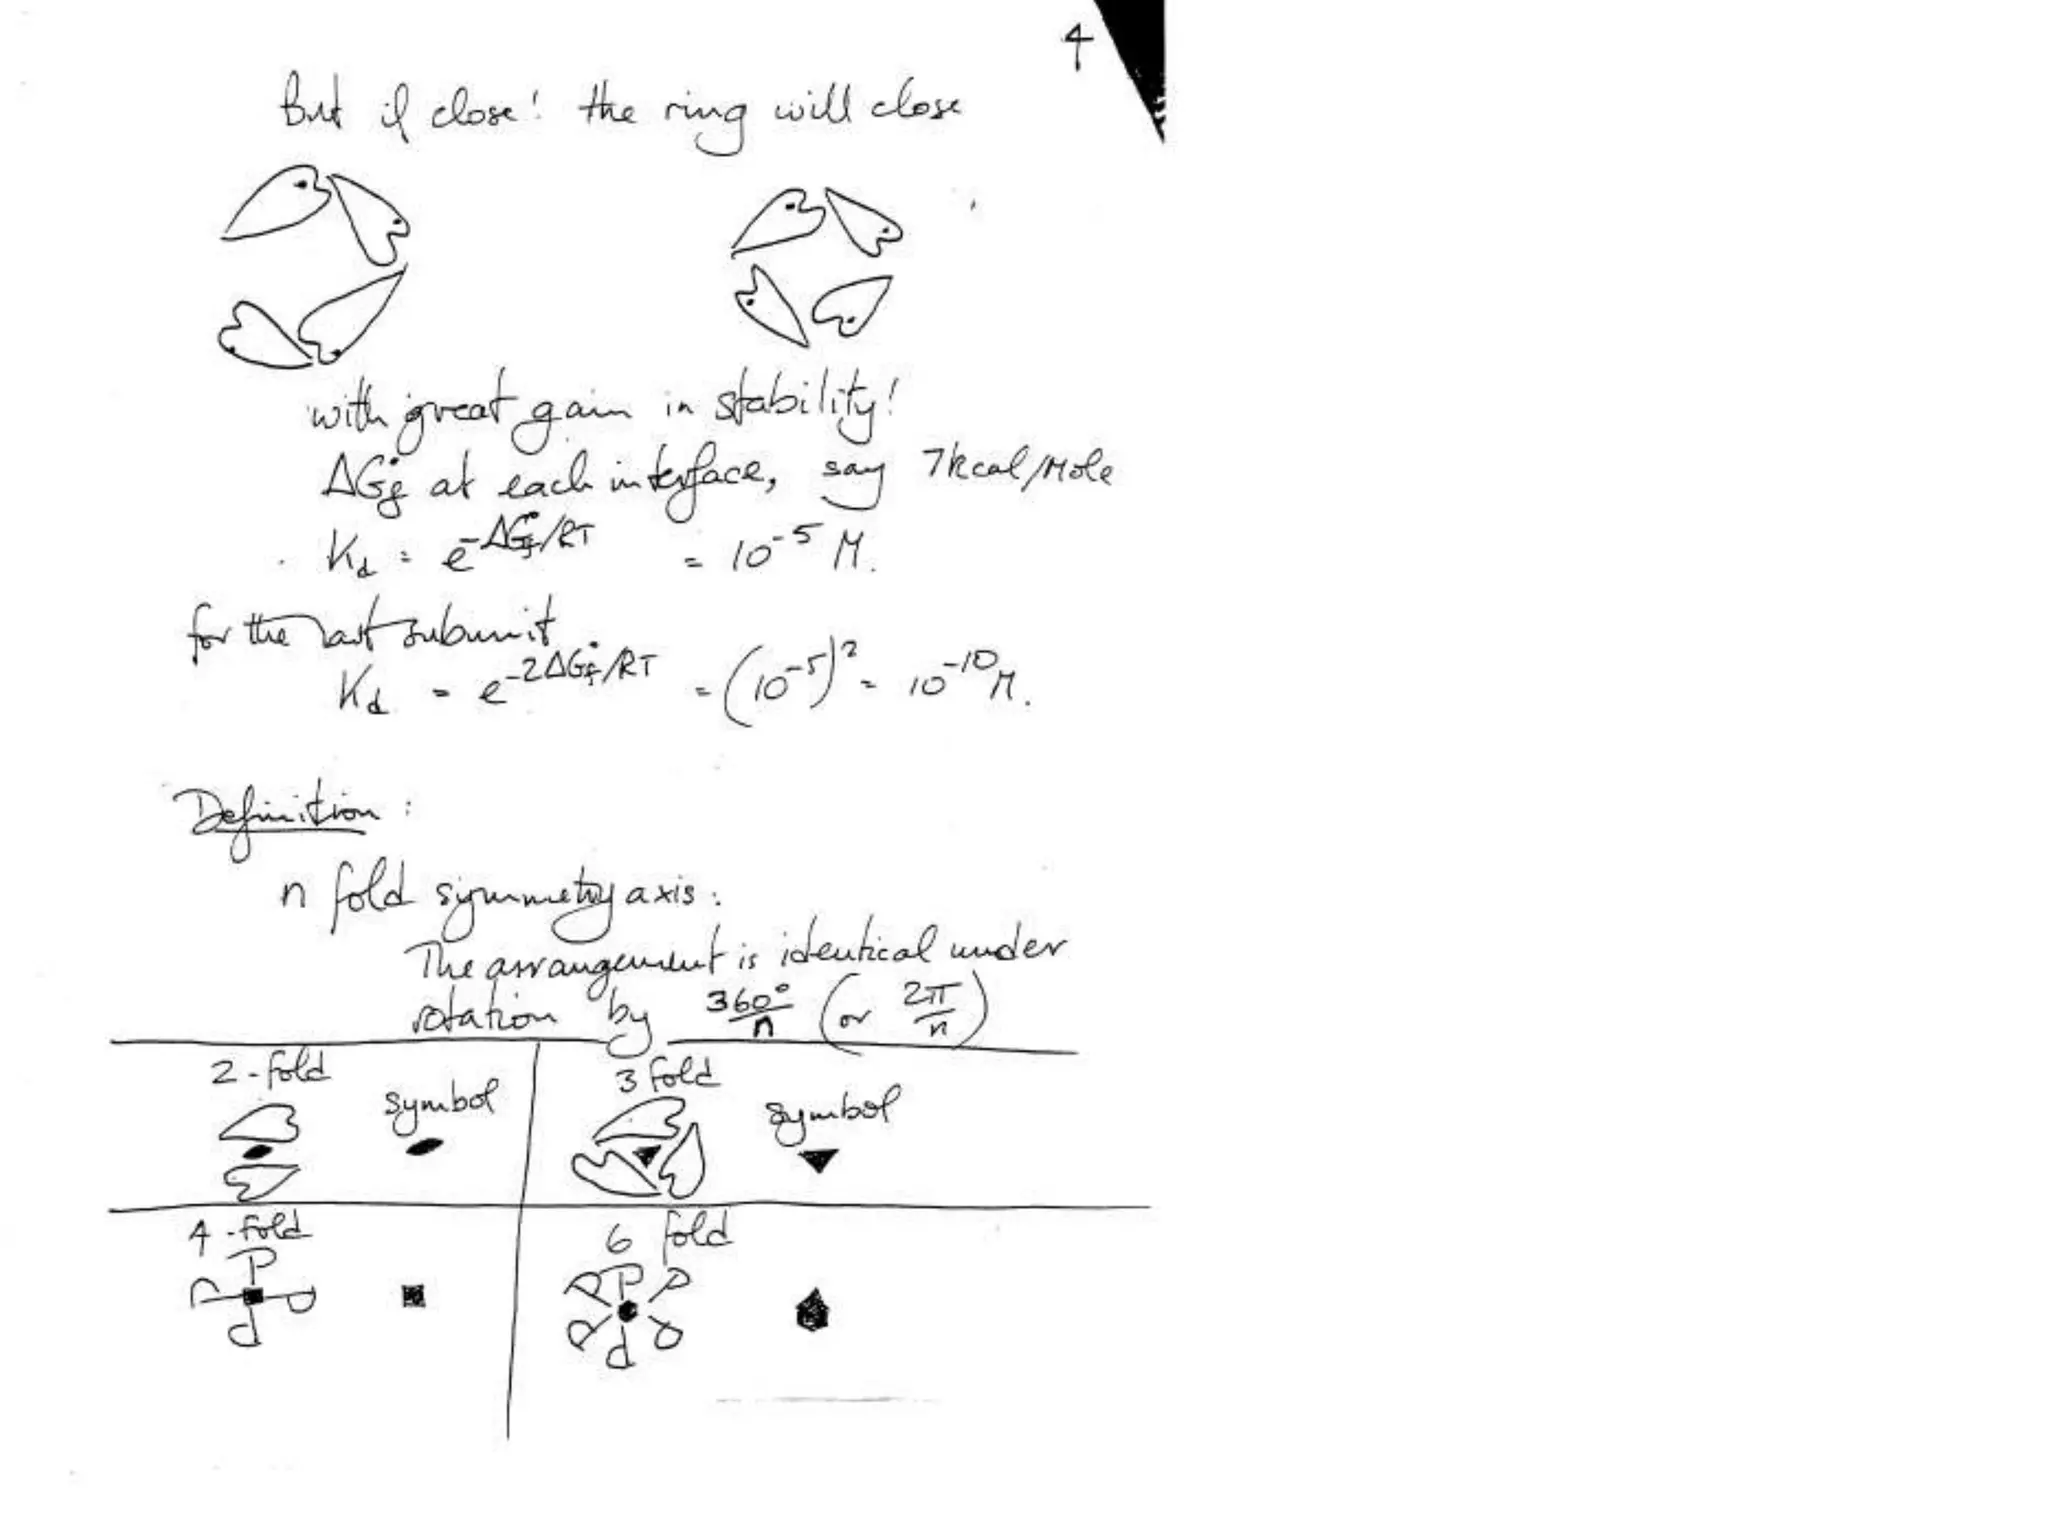 4
But if close! the ring will close
with great gain in stability!
ΔG°f at each interface, say 7kcal/Mole
Kd = e^-ΔG°f/RT = 10^-5 M.
for the last subunit
Kd = e^-2ΔG°f/RT = (10^-5)^2 = 10^-10 M.
Definition:
n fold symmetry axis:
The arrangement is identical under
rotation by 360°/n (or 2π/n)
2-fold symbol
3 fold symbol
4-fold
P
P P
d
6 fold
P P P
P d P